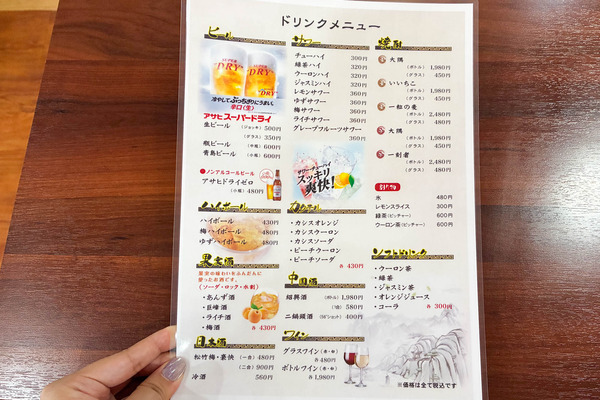 ドリンクメニュー
ビール
SUPER DRY
SUPER DRY
冷やしてぶっちぎりにうまい。
辛口〈生〉
アサヒスーパードライ
生ビール (ジョッキ) 500円
(グラス) 350円
瓶ビール (中瓶) 600円
青島ビール (小瓶) 600円
●ノンアルコールビール
アサヒドライゼロ
(小瓶) 480円
ハイボール
ハイボール 430円
梅ハイボール 480円
ゆずハイボール 480円
果実酒
果実の味わいをふんだんに
使ったお酒です。
(ソーダ・ロック・水割)
・あんず酒
・巨峰酒
・ライチ酒
・梅酒 各430円
日本酒
松竹梅・豪快 (一合) 480円
(二合) 900円
冷酒 560円
サワー
チューハイ 300円
緑茶ハイ 320円
ウーロンハイ 320円
ジャスミンハイ 320円
レモンサワー 360円
ゆずサワー 360円
梅サワー 360円
ライチサワー 360円
グレープフルーツサワー
360円
サワー・チューハイ
スッキリ
爽快!
カクテル
・カシスオレンジ
・カシスウーロン
・カシスソーダ
・ピーチウーロン
・ピーチソーダ
各430円
中国酒
紹興酒 (ボトル) 1,980円
580円
二鍋頭酒 400円
ワイン
グラスワイン (赤・白)
各480円
ボトルワイン (赤・白)
各1,980円
焼酎
大隅
(ボトル) 1,980円
(グラス) 450円
いいちこ
(ボトル) 1,980円
(グラス) 450円
一粒の麦
(ボトル) 2,480円
(グラス) 480円
大隅
(ボトル) 1,980円
(グラス) 450円
一刻者
(ボトル) 2,480円
(グラス) 480円
割り物
氷 480円
レモンスライス 300円
緑茶(ピッチャー) 600円
ウーロン茶(ピッチャー) 600円
ソフトドリンク
・ウーロン茶
・緑茶
・ジャスミン茶
・オレンジジュース
・コーラ 各300円
※価格は全て税込です